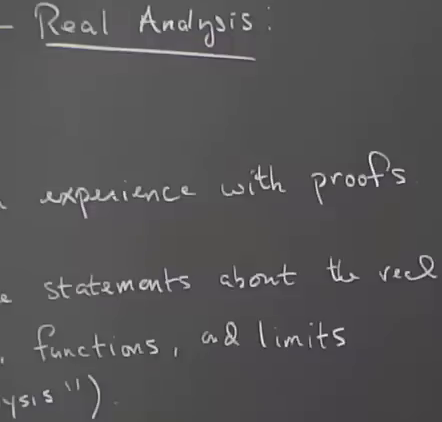 - Real Analysis:
experience with proofs
statements about the real
, functions, and limits
ysis").